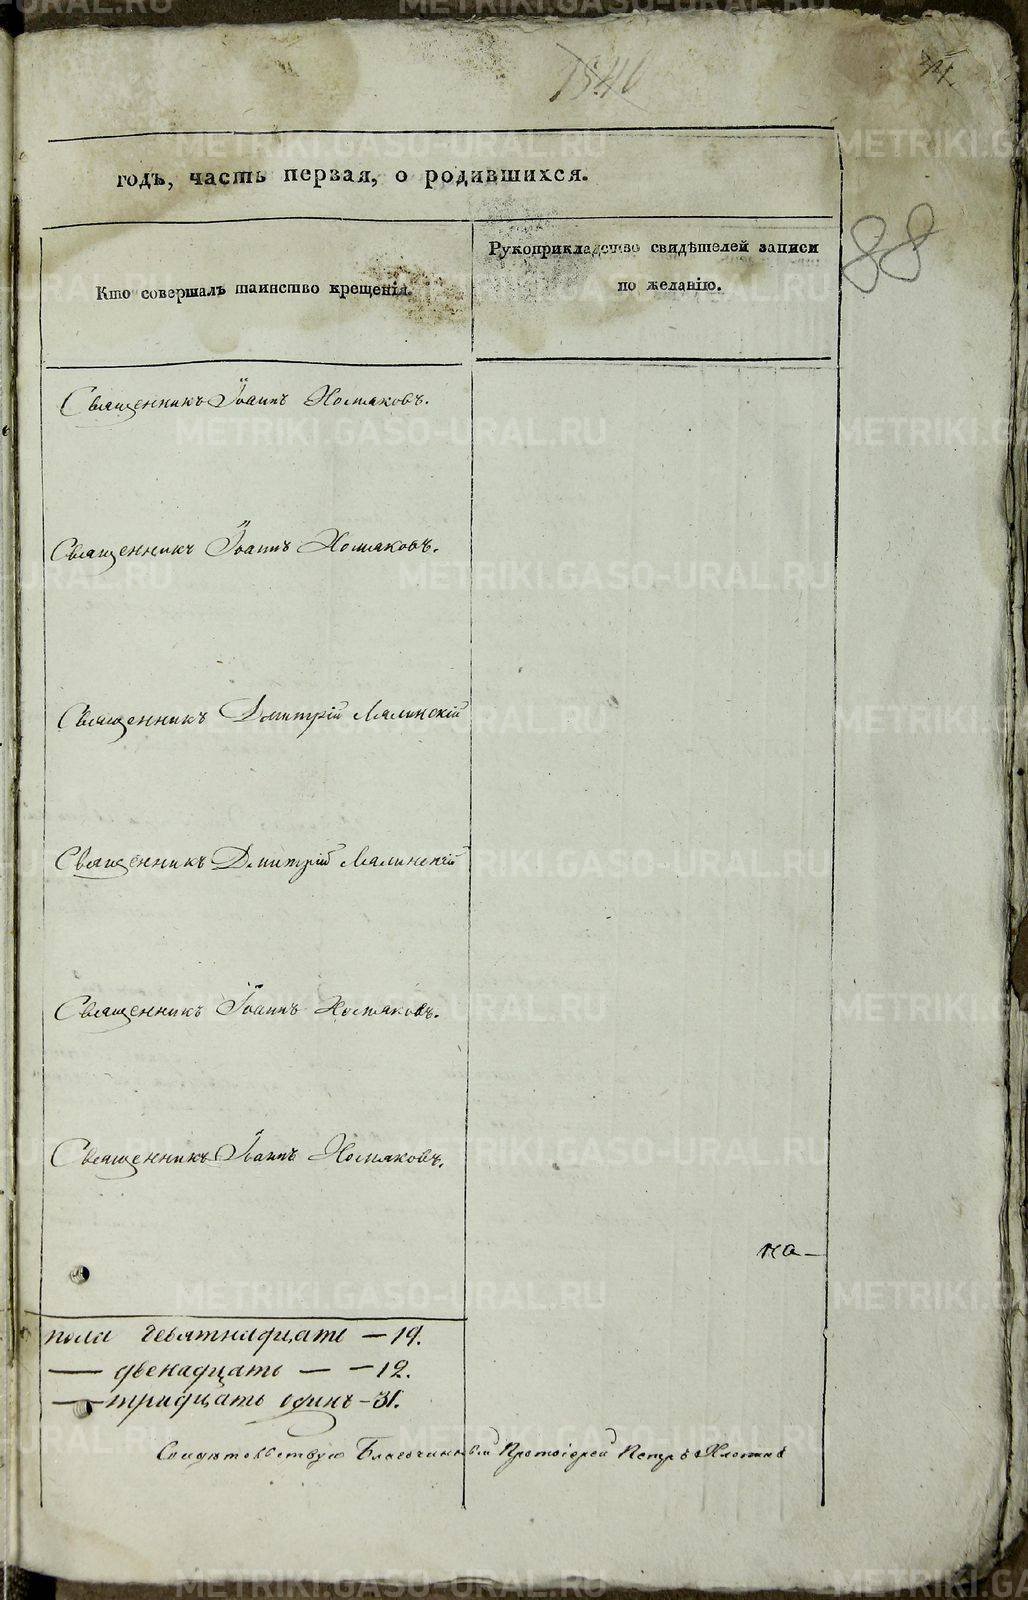 1840
годъ, часть первая, о родившихся.
Кто совершалъ таинство крещенія.
Рукоприкладство свидѣтелей записи
по желанію.
88
Священникъ Іоаннъ Хомяковъ.
Священникъ Іоаннъ Хомяковъ.
Священникъ Дмитрій Малинскій
Священникъ Дмитрій Малинскій
Священникъ Іоаннъ Хомяковъ.
Священникъ Іоаннъ Хомяковъ.
на—
пола девятнадцать — 19.
— двенадцать — — 12.
— тридцать одинъ — 31.
Свидѣтельствую Благочинный Протоіерей Петръ
METRIKI.GASO-URAL.RU